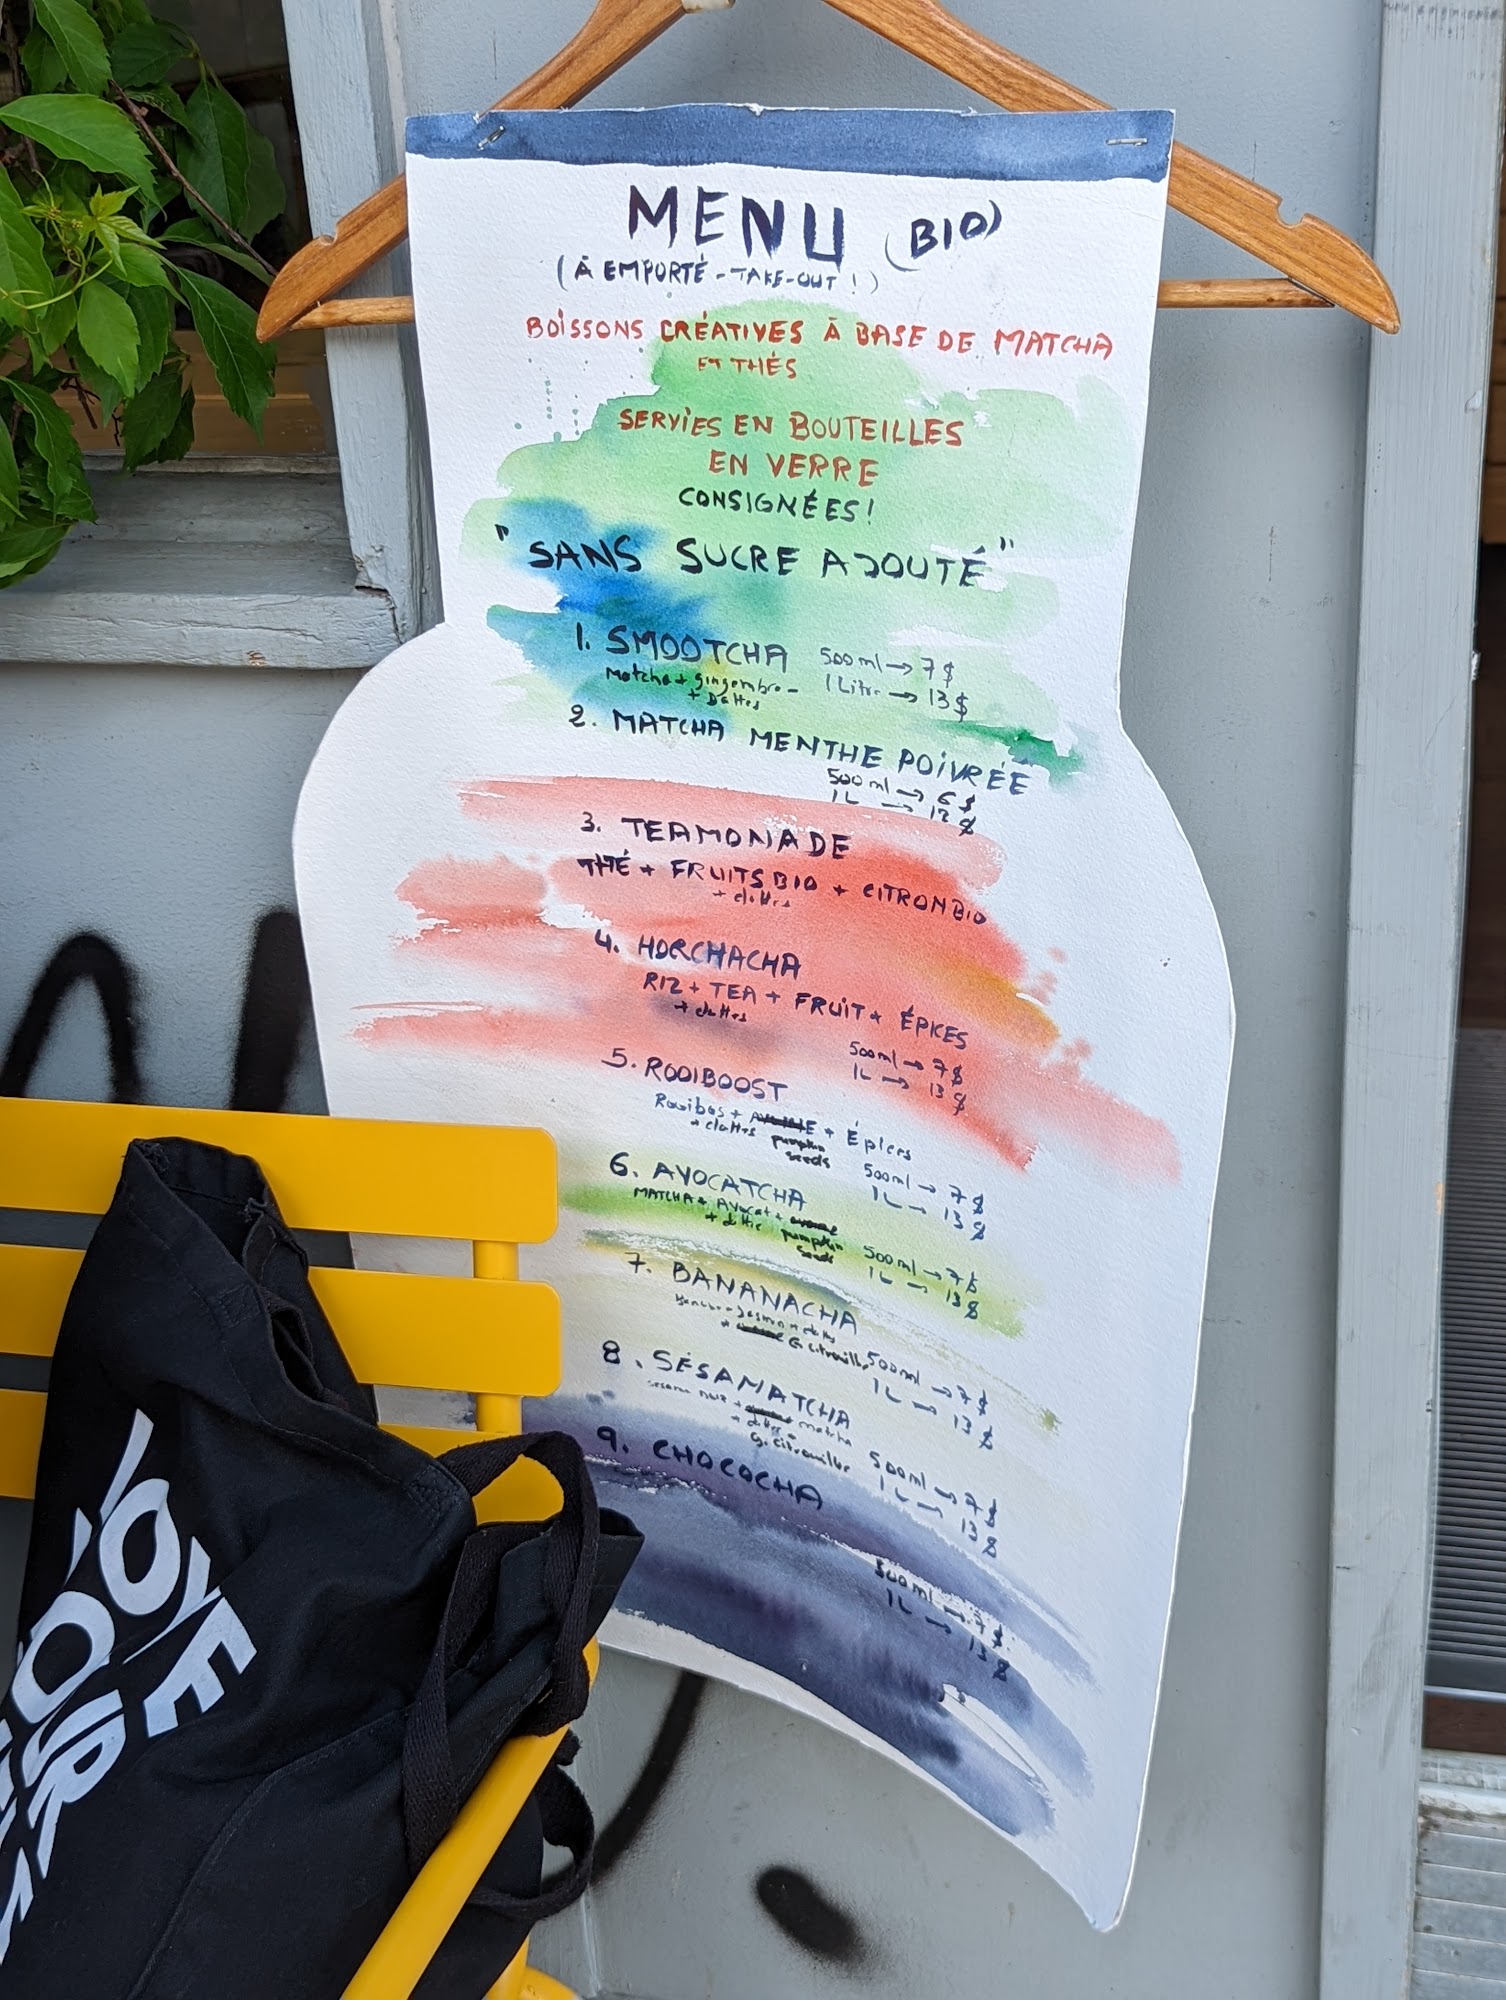 MENU (BIO)
(À EMPORTÉ - TAKE-OUT!)
BOISSONS CRÉATIVES À BASE DE MATCHA
ET THÉS
SERVIES EN BOUTEILLES
EN VERRE
CONSIGNÉES!
"SANS SUCRE AJOUTÉ"
1. SMOOTCHA 500ml → 7$
Matcha + gingembre - 1 Litre → 13$
+ Dattes
2. MATCHA MENTHE POIVRÉE
500ml → 6$
1L → 12$
3. TEAMONADE
THÉ + FRUITS BIO + CITRON BIO
+ dattes
4. HORCHACHA
RIZ + TEA + FRUIT + ÉPICES
+ dattes
500ml → 7$
1L → 13$
5. ROOIBOOST
Rooibos + + Épices
+ dattes pumpkin
seeds
500ml → 7$
1L → 13$
6. AVOCATCHA
MATCHA + Avocat +
+ datte pumpkin
seeds
500ml → 7$
1L → 13$
7. BANANACHA
Jasmin + datts
+ G. citrouille
500ml → 7$
1L → 13$
8. SÉSAMATCHA
sesame noir + matcha
+ dattes +
G. citrouille
500ml → 7$
1L → 13$
9. CHOCOCHA
500ml → 7$
1L → 13$
LOVE
YOUR